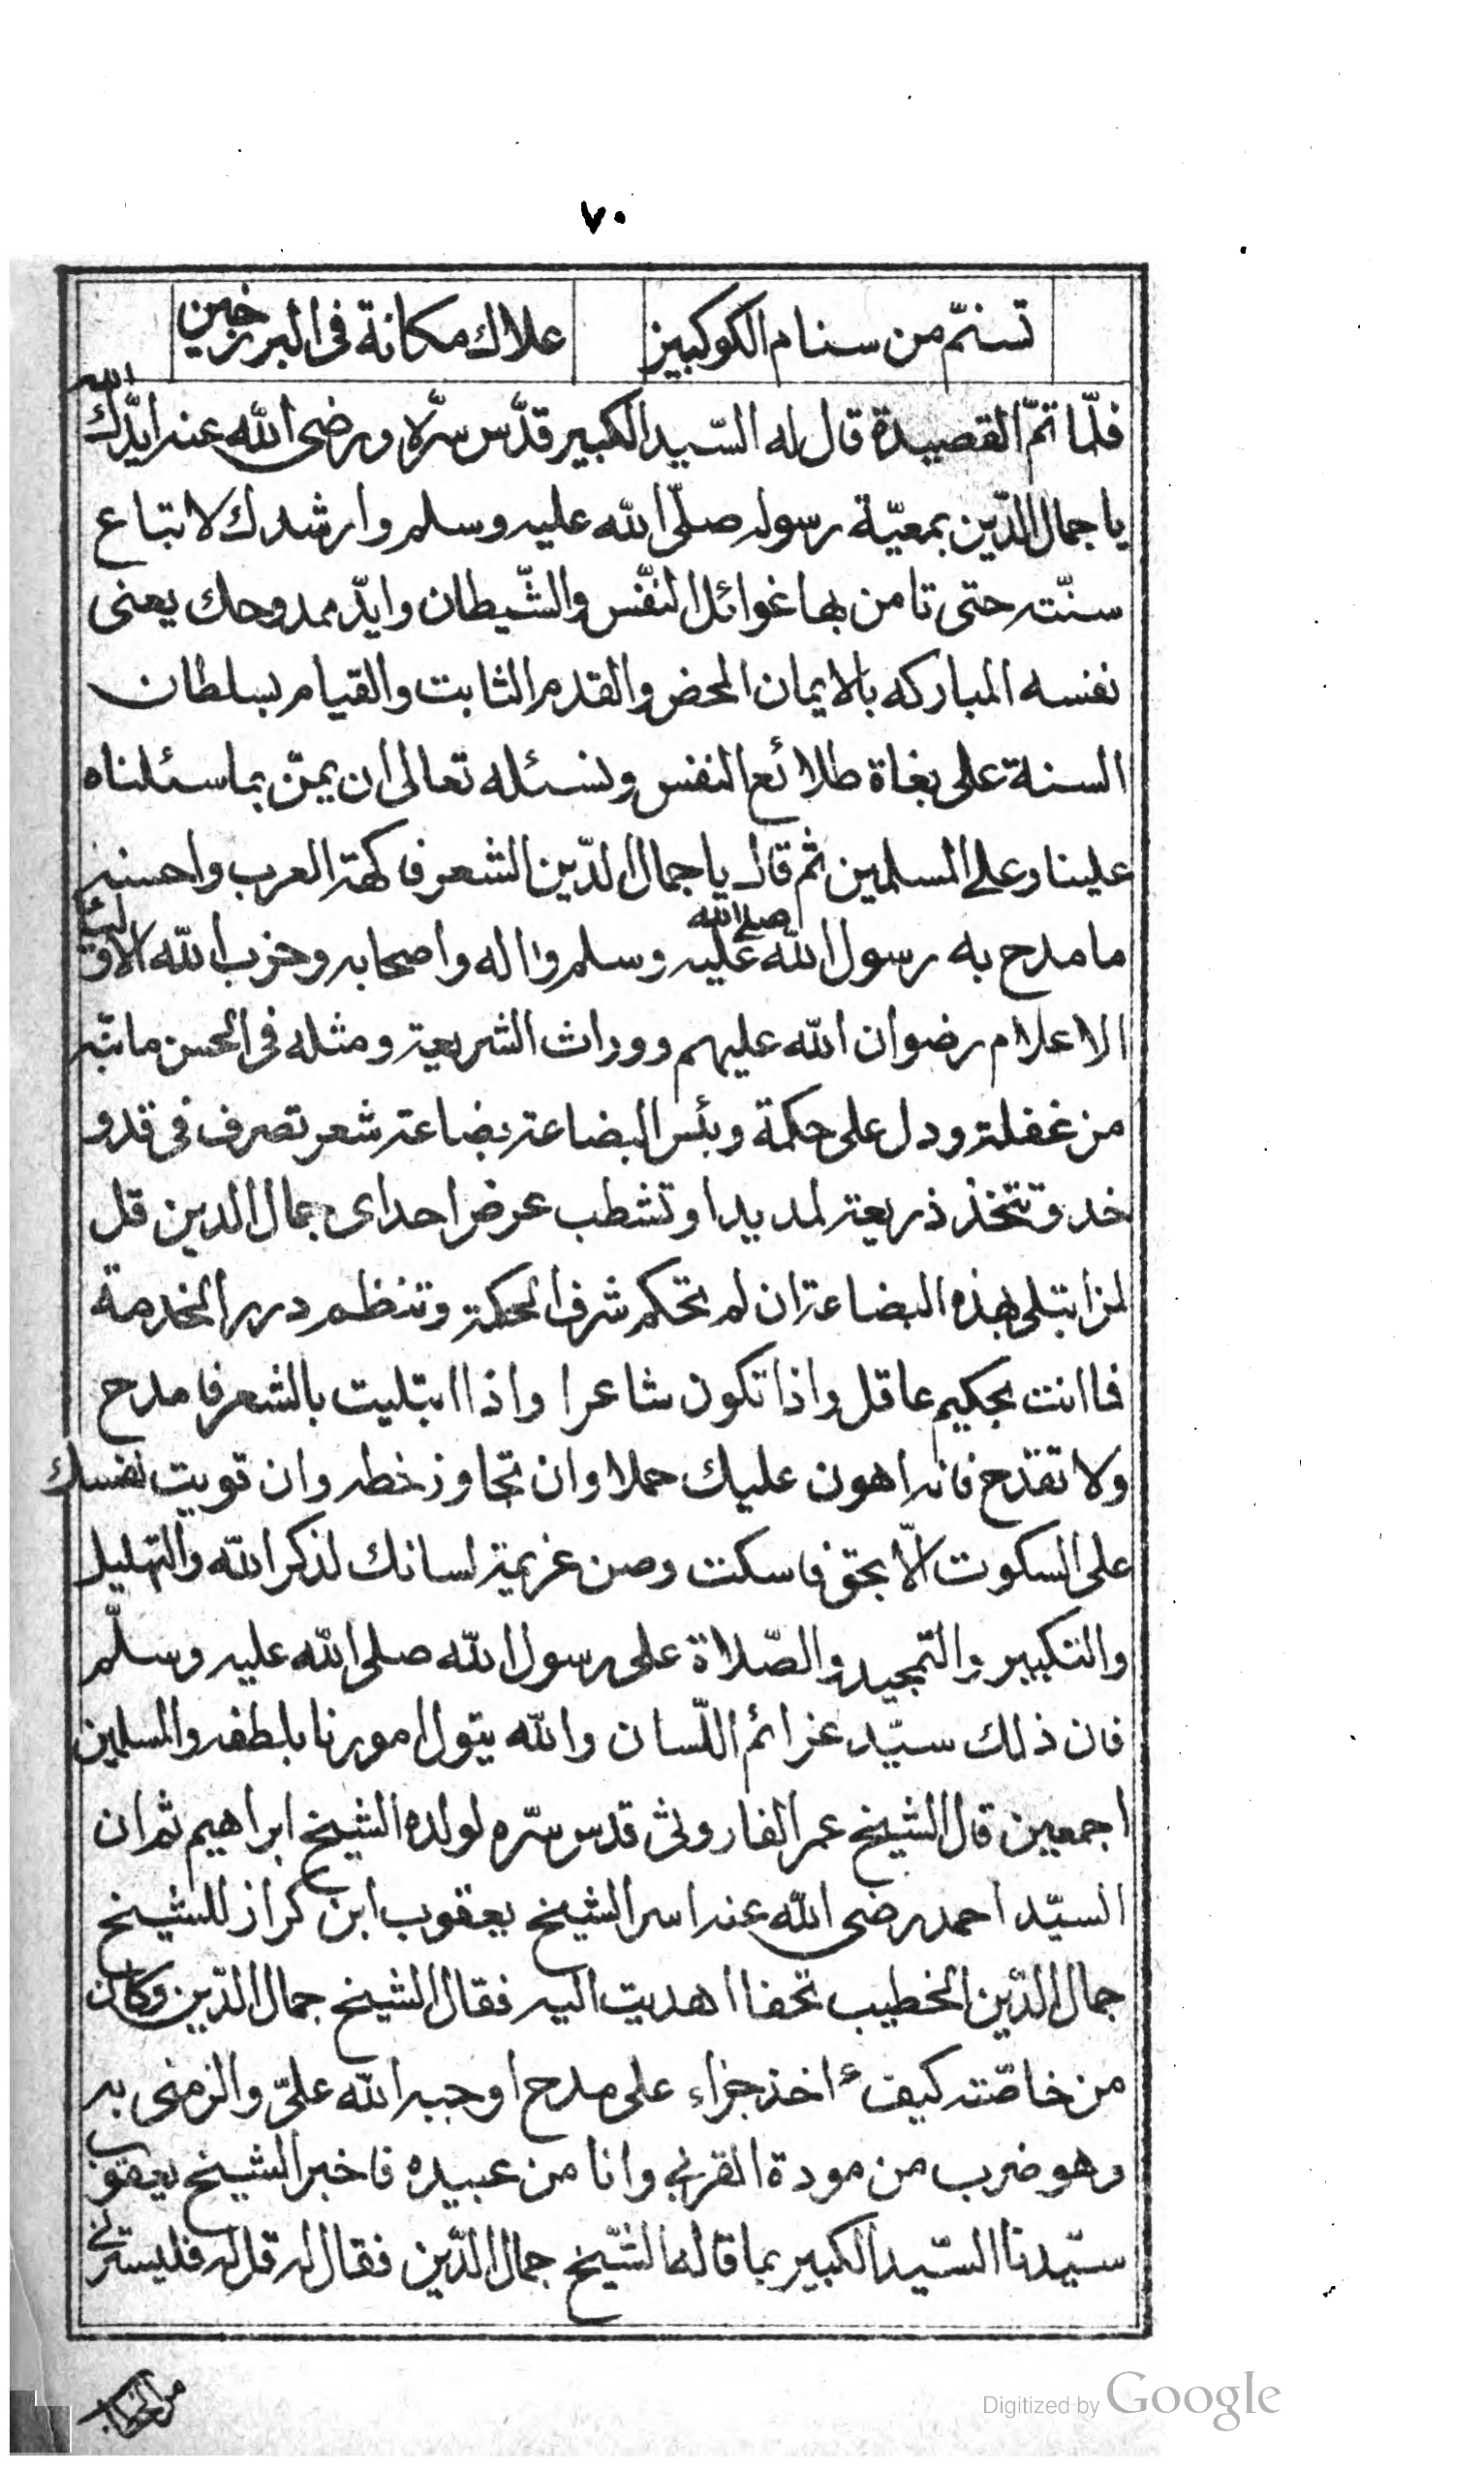 ٧٠
تسنّم من سنام الكوكبين علاك مكانة فى البرزخين
فلمّا تمّ القصيدة قال له السّيد الكبير قدّس سرّه ورضى الله عنه ايّدك الله
يا جمال الدّين بمعيّة رسوله صلّى الله عليه وسلم وارشدك لاتباع
سنّته حتى تامن بها غوائل النّفس والشّيطان وايّد ممدوحك يعنى
نفسه المباركه بالايمان المحض والقدم الثابت والقيام بسلطان
السنة على بغاة طلائع النفس ونسئله تعالى ان يمنّ بما سئلناه
علينا وعلى المسلمين ثم قال يا جمال الدّين الشعر فاكهة العرب واحسنه
ما مدح به رسول الله صلى الله عليه وسلم واله واصحابه وحزب الله الاولياء
الاعلام رضوان الله عليهم ووراث الشريعة ومثله فى الحسن ما نبّه
من غفلة ودل على حكمة وبئس البضاعة بضاعة شعر تصرف فى قد و
خد وتتخذ ذريعة لمد يد او تشطب عرض احد اى جمال الدين قل
لمن ابتلى بهذه البضاعة ان لم تحكم شرف الحكمة وتنظم درر الخدمة
فما انت بحكيم عاقل واذا تكون شاعرا واذا ابتليت بالشعر فامدح
ولا تقدح فانه اهون عليك حملا وان تجاوز خطه وان قويت نفسك
على السكوت الّا بحق فاسكت وصن عزيمة لسانك لذكر الله والتهليل
والتكبير والتمجيد والصّلاة على رسول الله صلى الله عليه وسلّم
فان ذلك سيّد عزائم اللّسان والله يتولى امورنا بلطفه والمسلمين
اجمعين قال الشيخ عمر الفاروثى قدس سرّه لولده الشيخ ابراهيم ثم ان
السيّد احمد رضى الله عنه اسر الشيخ يعقوب ابن كراز للشيخ
جمال الدّين الخطيب تحفا اهديت اليه فقال الشيخ جمال الدّين وكان
من خاصّته كيف ءاخذ جزاء على مدح اوجبه الله علىّ والزمنى به
وهو ضرب من مودة القربى وانا من عبيده فاخبر الشيخ يعقوب
سيّدنا السّيد الكبير بما قاله الشّيخ جمال الدّين فقال له قل له فليسترح
من الخطاب
Digitized by Google